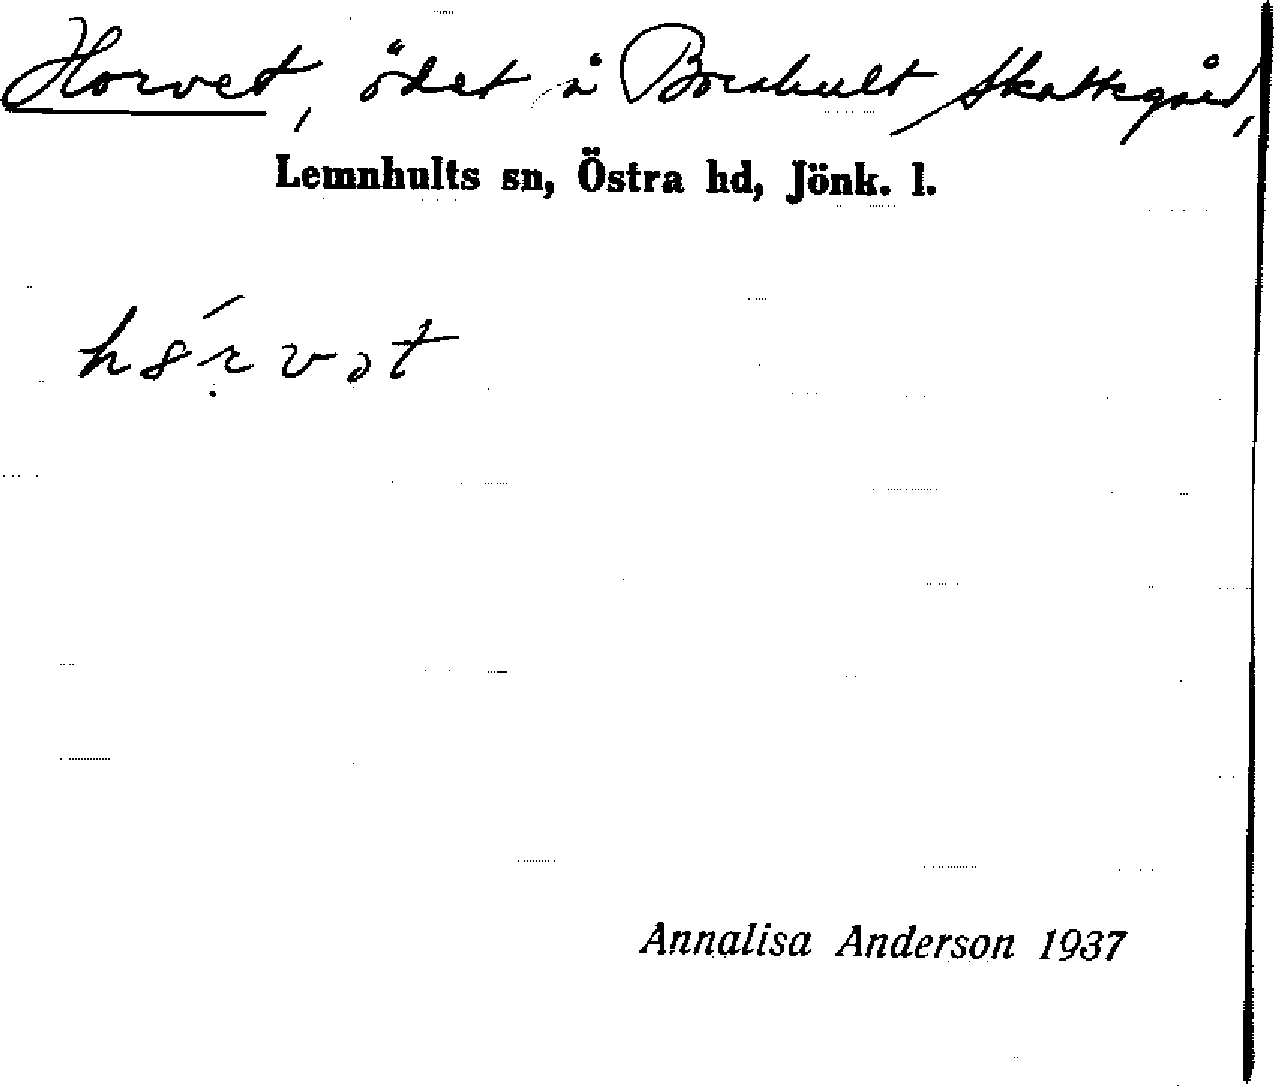 Horvet, ödet å Boeahult Skattegård,
Lemnhults sn, Östra hd, Jönk. l.
Annalisa Anderson 1937